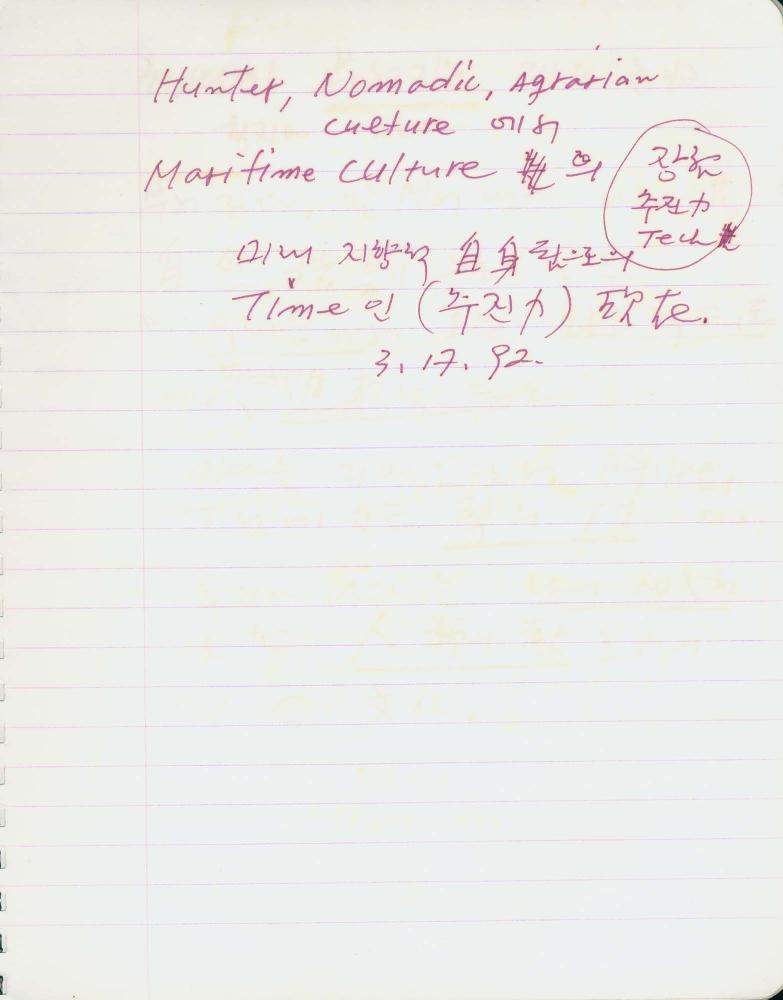 Hunter, Nomadic, Agrarian
culture 에서
Maritime Culture 의
추진力
Tech
미래 지향적 自身 으로의
Time 인 (추진力)
3. 17. 92.